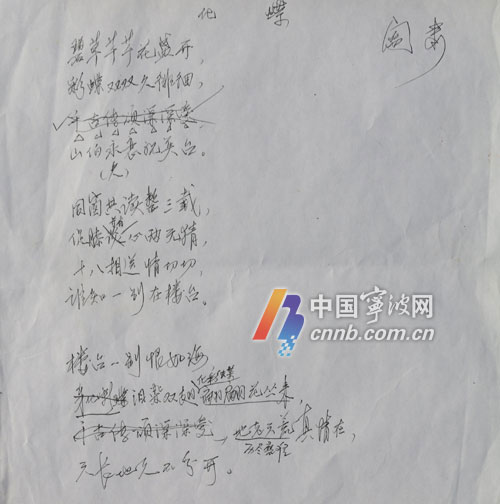 化 蝶
阎肃
碧草芊芊花盛开,
彩蝶双双久徘徊,
千古传颂深深爱,
山伯永恋祝英台。
同窗共读整三载,
促膝并肩心两无猜,
十八相送情切切,
谁知一别在楼台。
中国宁波网
cnnb.com.cn
楼台一别恨如海
化彩蝶
泪染双翅翩翩花丛来,
千古传颂深深爱, 地老天荒真情在,
历尽
天长地久不分开。